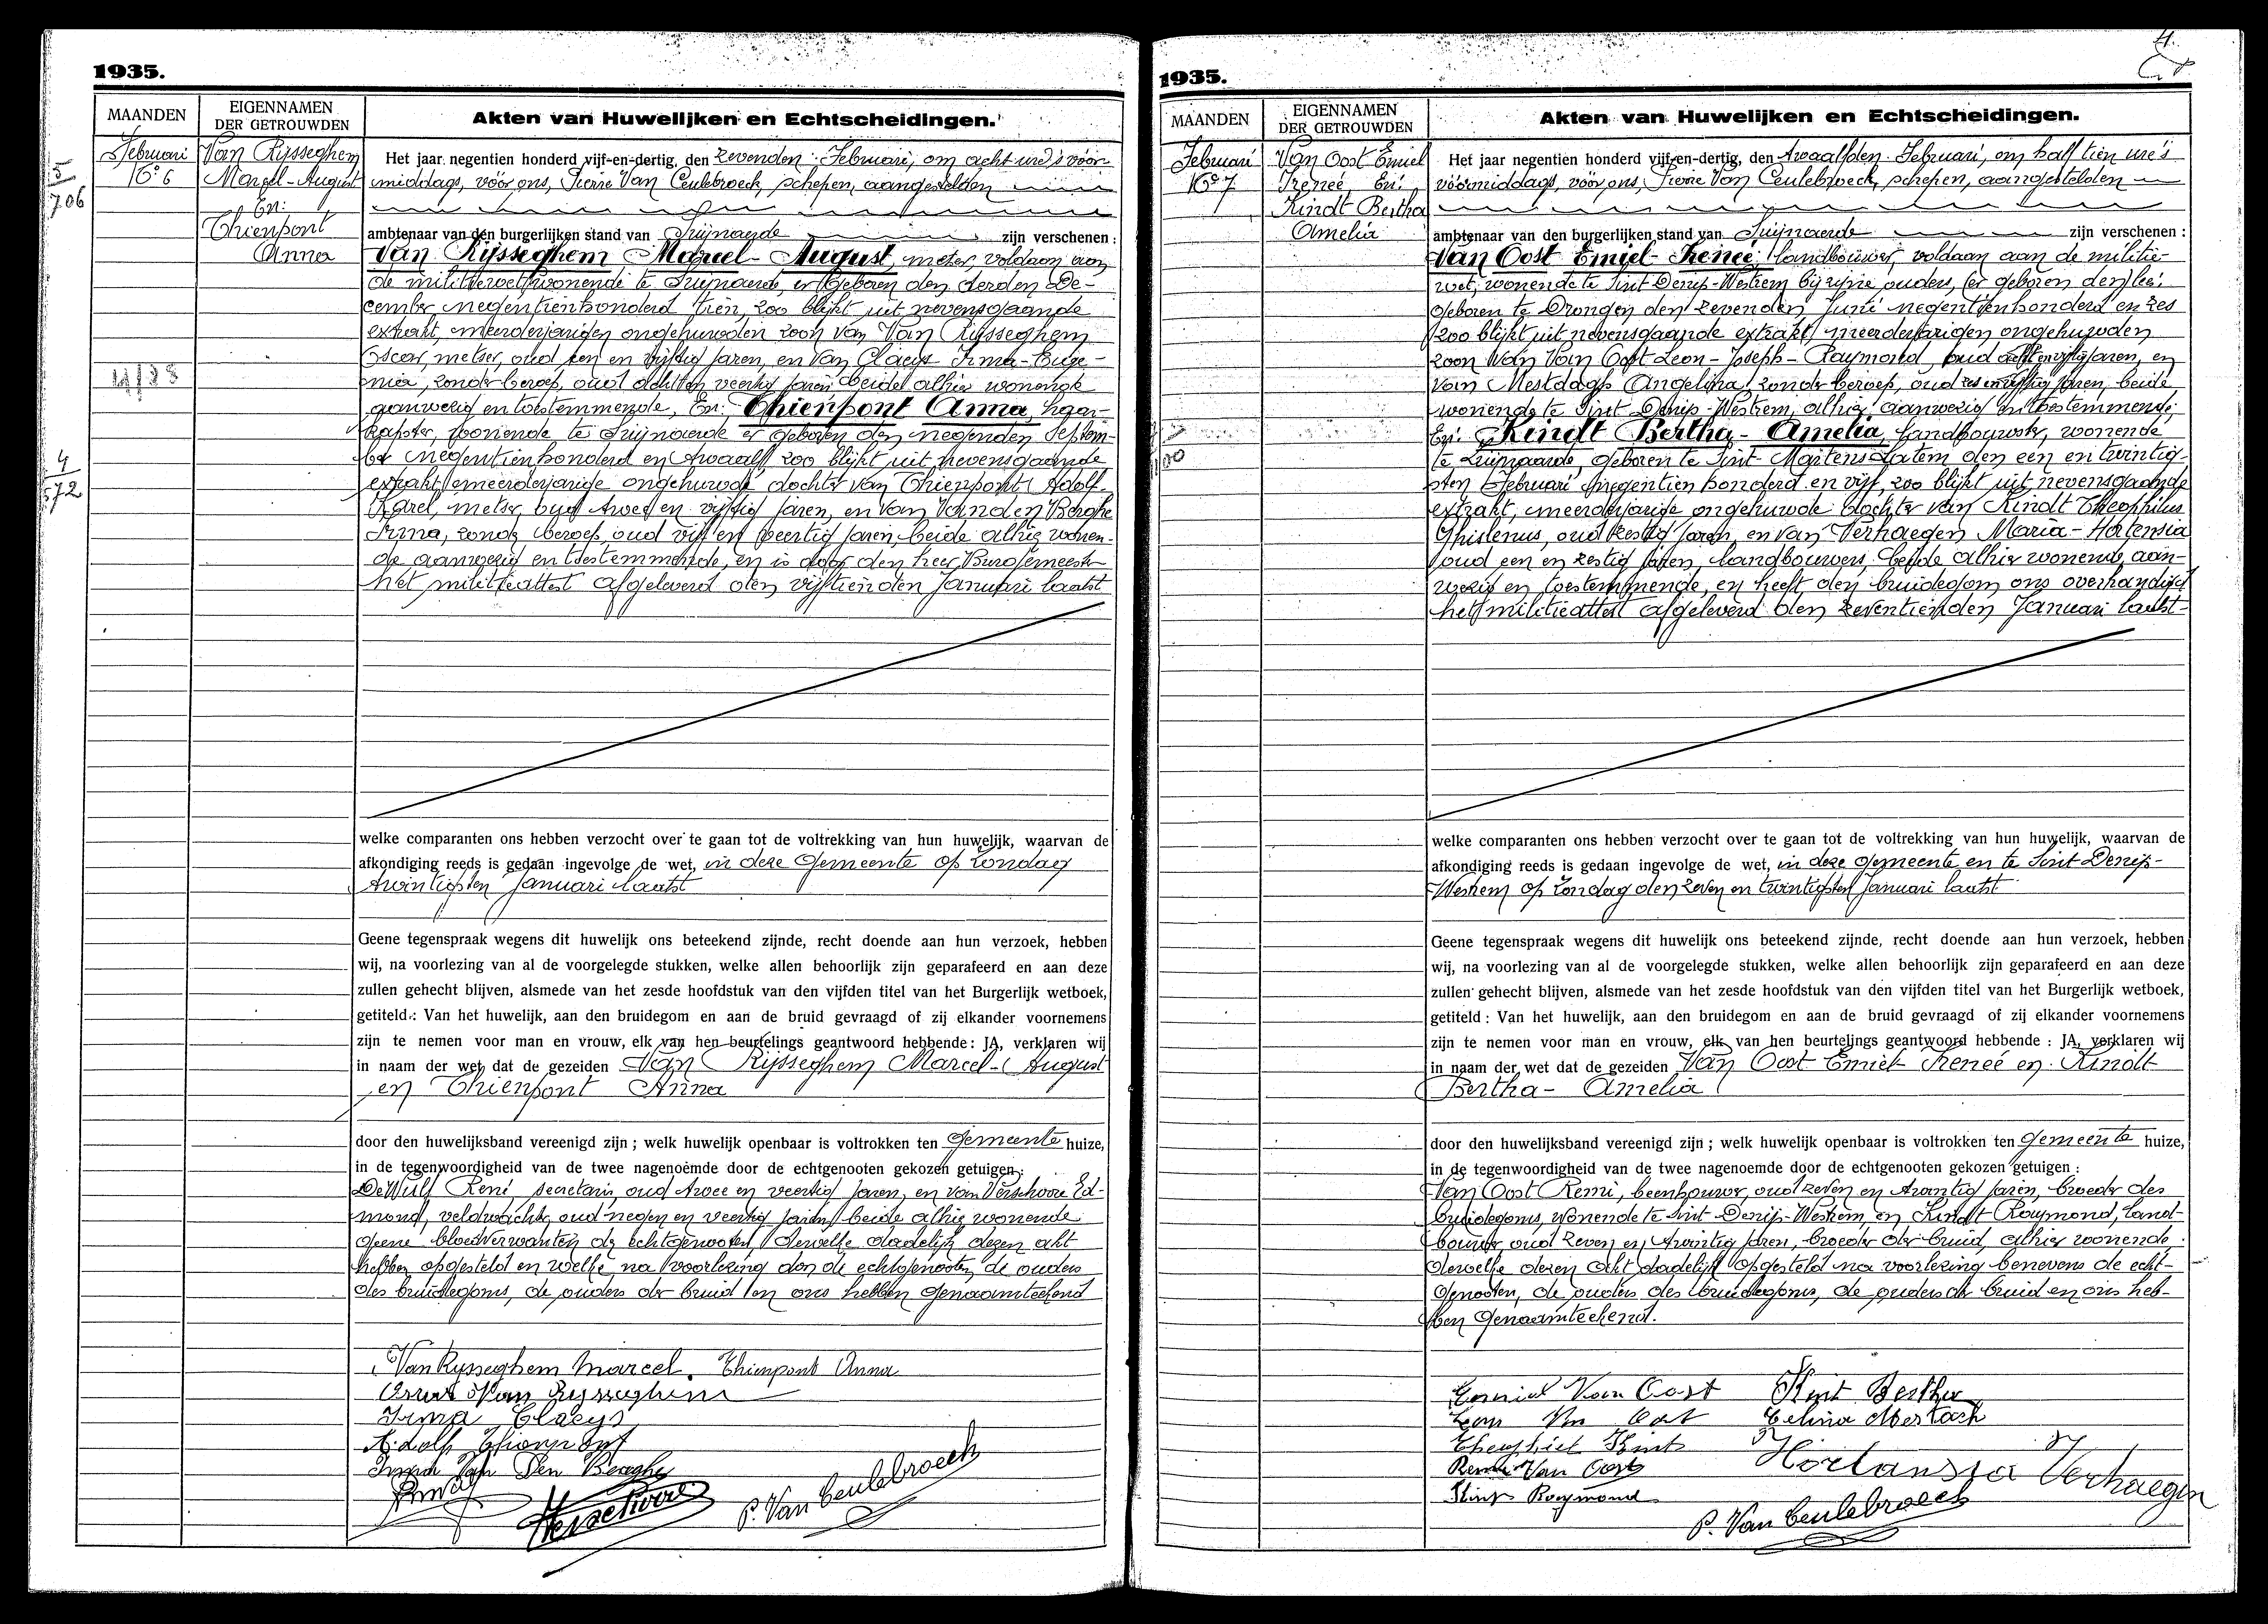 1935.
MAANDEN
EIGENNAMEN
DER GETROUWDEN
Akten van Huwelijken en Echtscheidingen.
Februari
No 6
Van Rijsseghem
Marcel-August
En:
Thienpont
Anna
5
706
4
572
Het jaar negentien honderd vijf-en-dertig, den zevenden Februari, om acht ure's vóór
middags, vóór ons, Pierre Van Ceulebroeck, schepen, aangestelden
ambtenaar van den burgerlijken stand van Zwijnaarde zijn verschenen :
Van Rijsseghem Marcel-August, metser, voldaan aan
de militiewet, wonende te Zwijnaarde, er geboren den derden De-
cember negentienhonderd tien, zoo blijkt uit nevensgaande
extrakt, meerderjarigen ongehuwden zoon van Van Rijsseghem
Oscar, metser, oud een en vijftig jaren, en van Claeys Irma-Euge-
nia, zonder beroep, oud acht en veertig jaren beide alhier wonende
aanwezig en toestemmende, En: Thienpont Anna, haar-
kapster, wonende te Zwijnaarde er geboren den negenden Septem-
ber negentienhonderd en twaalf, zoo blijkt uit nevensgaande
extrakt, meerderjarige ongehuwde dochter van Thienpont Adolf-
Karel, metser, oud twee en vijftig jaren, en van Van den Berghe
Irma, zonder beroep, oud vijf en veertig jaren, beide alhier wonen-
de aanwezig en toestemmende, en is door den heer Burgemeester
het militieattest afgeleverd den vijftienden Januari laatst
welke comparanten ons hebben verzocht over te gaan tot de voltrekking van hun huwelijk, waarvan de
afkondiging reeds is gedaan ingevolge de wet, in deze Gemeente op Zondag
twintigsten Januari laatst
Geene tegenspraak wegens dit huwelijk ons beteekend zijnde, recht doende aan hun verzoek, hebben
wij, na voorlezing van al de voorgelegde stukken, welke allen behoorlijk zijn geparafeerd en aan deze
zullen gehecht blijven, alsmede van het zesde hoofdstuk van den vijfden titel van het Burgerlijk wetboek,
getiteld : Van het huwelijk, aan den bruidegom en aan de bruid gevraagd of zij elkander voornemens
zijn te nemen voor man en vrouw, elk van hen beurtelings geantwoord hebbende : JA, verklaren wij
in naam der wet dat de gezeiden Van Rijsseghem Marcel-August
en Thienpont Anna
door den huwelijksband vereenigd zijn ; welk huwelijk openbaar is voltrokken ten Gemeente huize,
in de tegenwoordigheid van de twee nagenoemde door de echtgenooten gekozen getuigen :
De Wulf René, secretaris, oud twee en veertig jaren, en van Verschoore Ed-
mond, veldwachter, oud negen en veertig jaren beide alhier wonende
geene bloedverwanten der echtgenooten, dewelke dadelijk dezen akt
hebben opgesteld en welke, na voorlezing door de echtgenooten, de ouders
des bruidegoms, de ouders der bruid en ons hebben genaamteekend
Van Rysseghem Marcel. Thienpont Anna
Oscar Van Rysseghem
Irma Claeys
Adolf Thienpont
Irma Van Den Berghe
Verschoore
P. Van Ceulebroeck
1935.
MAANDEN
EIGENNAMEN
DER GETROUWDEN
Akten van Huwelijken en Echtscheidingen.
Februari
No 7
Van Oost Emiel
Ireneé, En:
Kindt Bertha
Amelia
Het jaar negentien honderd vijf-en-dertig, den twaalfden Februari, om half tien ure's
vóórmiddags, vóór ons, Pierre Van Ceulebroeck, schepen, aangestelden
ambtenaar van den burgerlijken stand van Zwijnaarde zijn verschenen :
Van Oost Emiel-Irenee, landbouwer, voldaan aan de militie-
wet, wonende te Sint-Denijs-Westrem bij zijne ouders,
geboren te Drongen den zevenden Juni negentienhonderd en zes
zoo blijkt uit nevensgaande extrakt, meerderjarigen ongehuwden
zoon van Van Oost Leon-Joseph-Raymond, oud acht en vijftig jaren, en
van Mestdagh Angelina, zonder beroep, oud zes en vijftig jaren, beide
wonende te Sint Denijs-Westrem, alhier aanwezig en toestemmende,
En: Kindt Bertha-Amelia, landbouwster, wonende
te Zwijnaarde, geboren te Sint-Martens Latem den een en twintig-
sten Februari negentien honderd en vijf, zoo blijkt uit nevensgaande
extrakt, meerderjarige ongehuwde dochter van Kindt Theophilus
Ghislenus, oud zestig jaren, en van Verhaegen Maria-Hortensia
oud een en zestig jaren, landbouwers, beide alhier wonende, aan-
wezig en toestemmende, en heeft den bruidegom ons overhandigd
het militieattest afgeleverd den zeventienden Januari laatst-
welke comparanten ons hebben verzocht over te gaan tot de voltrekking van hun huwelijk, waarvan de
afkondiging reeds is gedaan ingevolge de wet, in deze gemeente en te Sint-Denijs-
Westrem op Zondag den zeven en twintigsten Januari laatst
Geene tegenspraak wegens dit huwelijk ons beteekend zijnde, recht doende aan hun verzoek, hebben
wij, na voorlezing van al de voorgelegde stukken, welke allen behoorlijk zijn geparafeerd en aan deze
zullen gehecht blijven, alsmede van het zesde hoofdstuk van den vijfden titel van het Burgerlijk wetboek,
getiteld : Van het huwelijk, aan den bruidegom en aan de bruid gevraagd of zij elkander voornemens
zijn te nemen voor man en vrouw, elk van hen beurtelings geantwoord hebbende : JA, verklaren wij
in naam der wet dat de gezeiden Van Oost Emiel-Irenee en Kindt
Bertha-Amelia
door den huwelijksband vereenigd zijn ; welk huwelijk openbaar is voltrokken ten gemeente huize,
in de tegenwoordigheid van de twee nagenoemde door de echtgenooten gekozen getuigen :
Van Oost Remi, beenhouwer, oud zeven en twintig jaren, broeder des
bruidegoms, wonende te Sint-Denijs-Westrem, en Kindt Raymond, land-
bouwer oud zeven en twintig jaren, broeder der bruid, alhier wonende.
dewelke dezen akt dadelijk opgesteld na voorlezing benevens de echt-
genooten, de ouders des bruidegoms, de ouders der bruid en ons heb-
ben genaamteekend.
Emiel Van Oost Kint Bertha
Leon Van Oost Celina Mestach
Theophiel Kint Hortansia Verhaegen
Remi Van Oost
Kint Raymond
P. Van Ceulebroeck